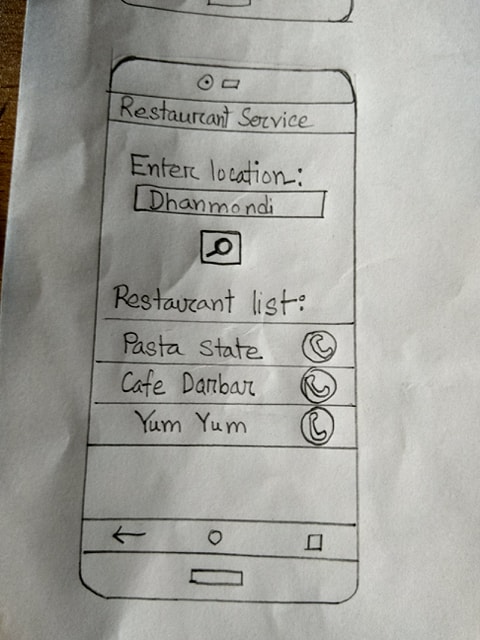 Restaurant Service
Enter location:
Dhanmondi
Restaurant list:
Pasta state
Cafe Darbar
Yum Yum